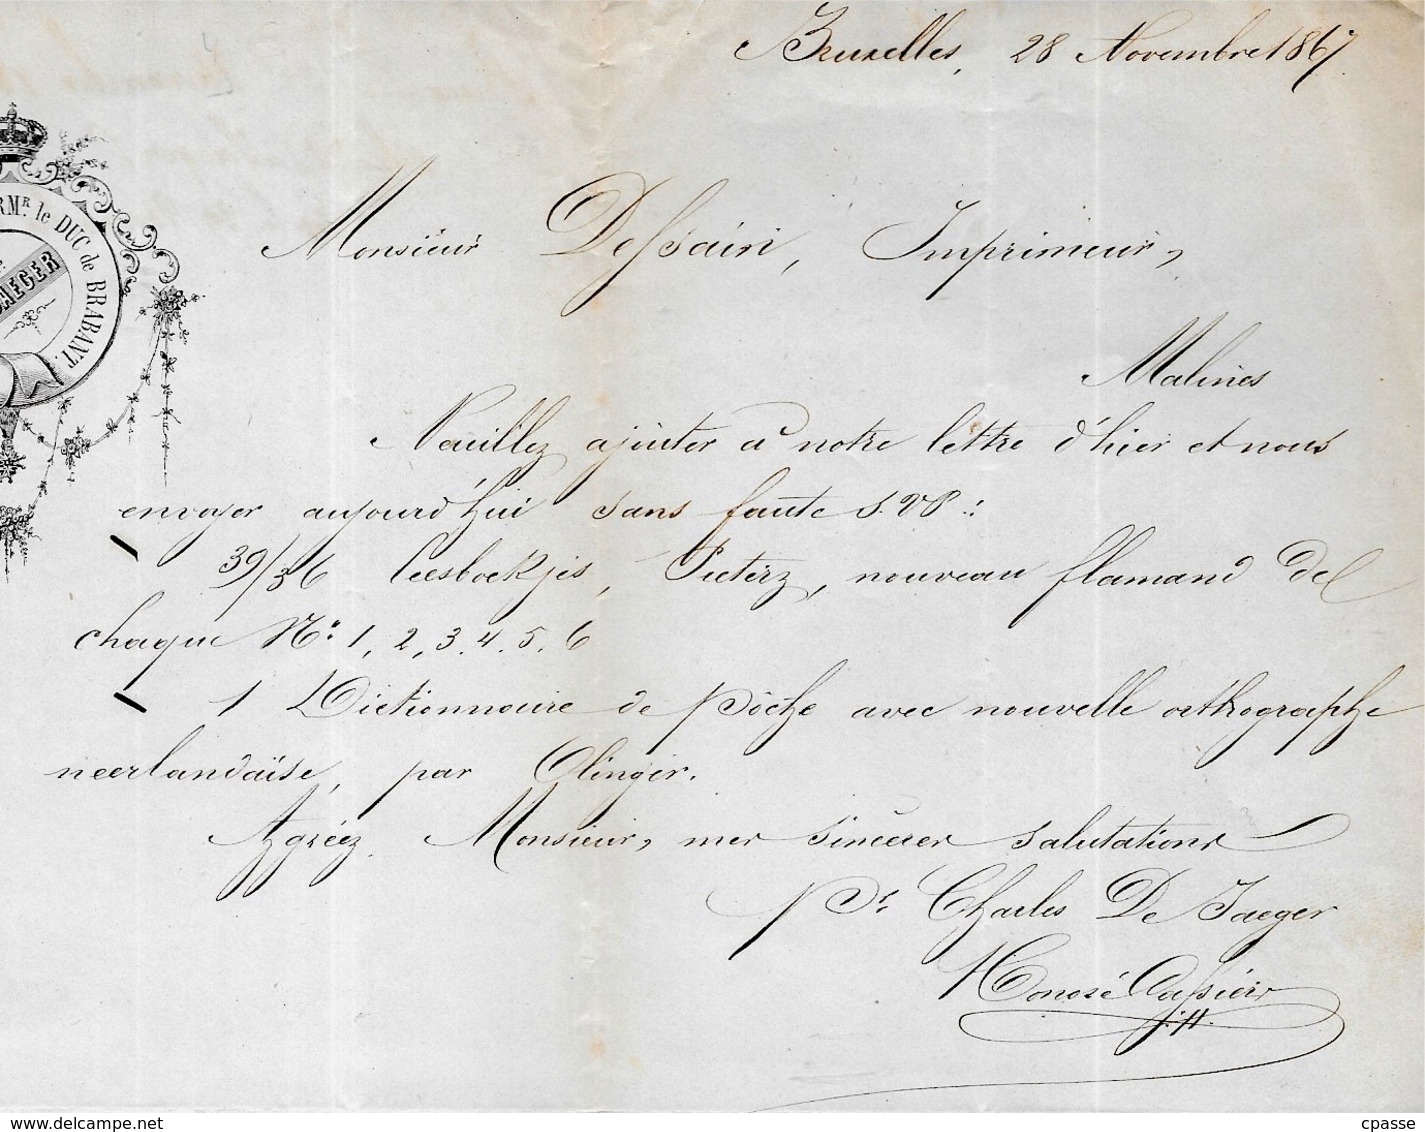 Bruxelles, 28 Novembre 1867
RMR. le DUC de BRABANT.
AEGER
Monsieur Dessain, Imprimeur,
Malines
Veuillez ajouter à notre lettre d'hier et nous
envoyer aujourd'hui sans faute s.v.p.:
39/36 leesboekjes, Pieterz, nouveau flamand de
chaque No. 1, 2, 3. 4. 5. 6
1 Dictionnaire de pôche avec nouvelle orthographe
neerlandaise, par Olinger.
Agréez Monsieur, mes sincères salutations
Pr. Charles De Jaeger
Honoré
cpasse